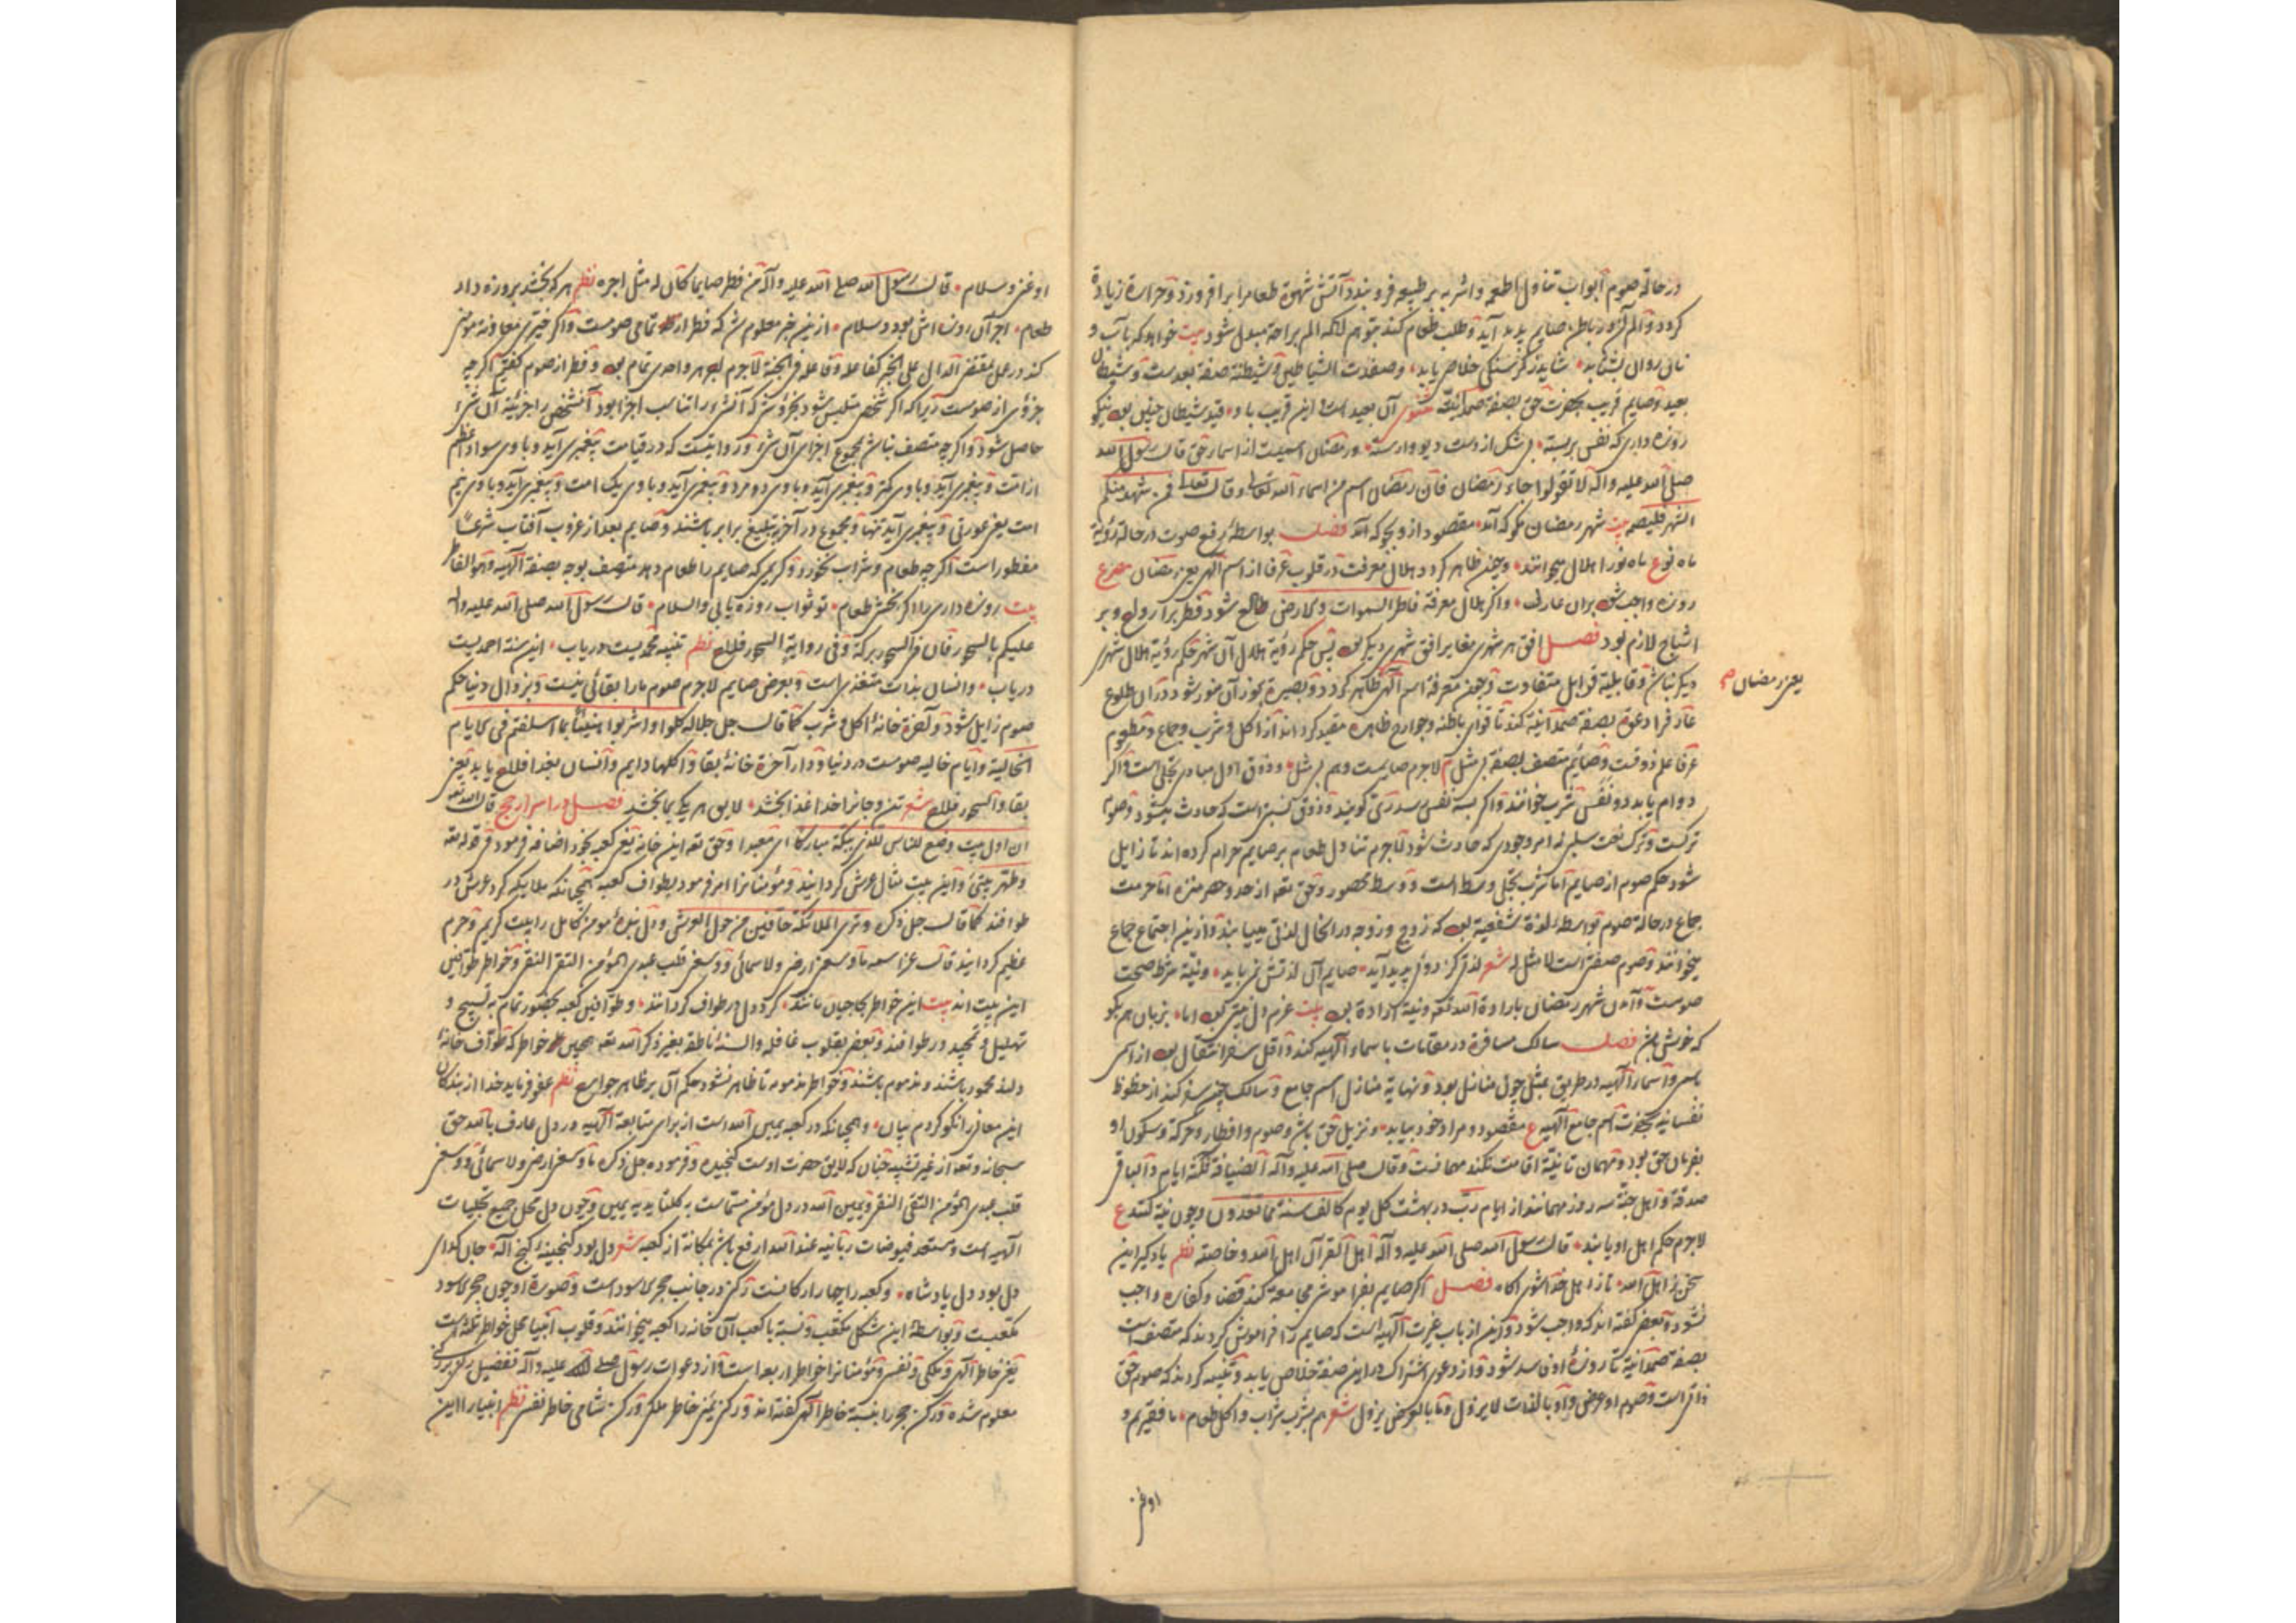 در حالة صوم ابواب تناول اطعمه واشربه بر طبیعه فروبندد آتش شهوة طعام را برافروزد و حرارة زیادة
کردد و الم آن در باطن صایم پدید آید و طلب طعام کند بتوهم آنکه الم براحة مبدل شود بیت خواهد که بآب و
نان روان بشتابد شاید ز کرسنکی خلاصی یابد وصفدت الشیاطین و شیطنة صفة بعدست و شیطان
بعید و صایم قریب بحضرت حق بصفة صمدانیت مثنوی آن بعید است این قریب باو قید شیطان چنین بود نیکو
روزه داری که نفس بربسته بی شک از دست دیو وارسته و رمضان اسمیست از اسماء حق قال رسول الله
صلی الله علیه واله لا تقولوا جاء رمضان فان رمضان اسم من اسماء الله تعالی وقال تعالی فمن شهد منکم
الشهر فلیصمه بیت شهر رمضان مکو که آمد مقصود از و بجو که آمد فصل بواسطهٔ رفع صوت در حالة رؤیة
ماه نو ع ماه نو را هلال میخوانند وچون ظاهر کردد هلال معرفت در قلوب عرفا از اسم الهی یعنی رمضان مصرع
روزه واجب شود بران عارف واکر هلال معرفة فاطر السموات والارض طالع شود فطر بر ارواح و بر
اشباح لازم بود فصل افق هر شهری مغایر افق شهری دیکر بود پس حکم رؤیة هلال آن شهر حکم رؤیة هلال شهری
دیکر نباشد و قابلیة قوابل متفاوت و چون معرفة اسم الهی ظاهر کردد و بصیرة بنور آن منور شود در آن طلوع
یعنی رمضان
عارف را دعوة بصفة صمدانیة کند تا قوای باطنه وجوارح ظاهره مقید کرداند از اکل و شرب وجماع و مطعوم
عرفا علم ذوقست و صایم متصف بصفة بی مثل لاجرم صایمست وهم بی مثل و ذوق اول مبادی تجلی است و اکر
دوام یابد دو نفس شرب خوانند و اکر بسه نفس رسد ری کویند و ذوق نسبتی است که حادث میشود و صوم
ترکست و ترک نعت سلبی نه امر وجودی که حادث شود لاجرم تناول طعام بر صایم حرام کرده اند تا زایل
شود حکم صوم از صایم اما شرب تجلی وسط است و وسط محصور و حق تعه از حد و حصر منزه اما حرمت
جماع در حالة صوم بواسطه لذة شفعیة بود که زوج و زوجه در انحال لذتی مییابند و ازین اجتماع جماع
میخوانند و صوم صفتی است لا مثل له شعر لذتی کز دوی پدید آید صایم آن لذتش نمی باید و نیة شرط صحت
صومست و آمدن شهر رمضان بارادة الله تعه و نیة ارادة بود بیت عزم دل نیتی بود اما بزبان هم بکو
که خوش باشد فصل سالک مسافرة در مقامات باسماء الهیه کند و اقل سفر انتقال بود از اسمی
باسمی و اسماء الهیه در طریق بمثل چون منازل بود و نهایة منازل اسم جامع و سالک چون سفر کند از حظوظ
نفسانیه بحضرت اسم جامع الهیه ع مقصود و مراد خود بیابد و نزیل حق باشد و صوم و افطار و حرکة و سکون او
بفرمان حق بود و مهمان تا نیة اقامت نکند مهمانست وقال صلی الله علیه وآله الضیافة ثلثة ایام و الباقی
صدقة و اهل جنة سه روز مهمانند از ایام رب در بهشت کل یوم کالف سنة مما تعدون وچون نیة کنند ع
لاجرم حکم اهل او یابند قال رسول الله صلی الله علیه وآله اهل القرآن اهل الله وخاصته نظم یاد کیر این
سخن ز اهل الله تا ز اهل خدا شوی آکاه فصل اکر صایم بفراموشی مجامعة کند قضا و کفاره واجب
نشود و بعضی کفته اند که واجب شود و این از باب غیرت الهیه است که صایم را فراموش کردند که متصف است
بصفة صمدانیة تا روزهٔ او فاسد شود و از دعوی اشتراک در این صفة خلاص یابد و تنبیه کردند که صوم حق
ذاتی است و صوم او عرضی و ما بالذات لا یزول و ما بالعرض یزول شعر هم بشرب شراب و اکل طعام ما فقیریم و
او غنی
او غنی و سلام قال رسول الله صلی الله علیه وآله من فطر صایما کان له مثل اجره نظم هر که بخشد بروزه دار
طعام اجر آن روزه اش بود و سلام ازین خبر معلوم شد که فطر از تمامی صومست و اکر خیری معاونة مؤمنی
کند در عمل بمقتضی الدال علی الخیر کفاعله و فاعله فی الجنة لاجرم اجر هر واحدی تمام بود و فطر از صوم کفتیم اکرچه
جزوی از صومست زیرا که اکر شخصی متلبس شود بجزوی شئ که آن شئ را تناسب اجزا بود آن شخص را جزئیة آن شئ
حاصل شود و اکرچه متصف نباشد بمجموع اجزای آن شئ و در روایتست که در قیامت پیغمبری آید و با وی سواد اعظم
از امت و پیغمبری آید و با وی کمتر و پیغمبری آید و با وی دو مرد و پیغمبری آید و با وی یک امت و پیغمبری آید و با وی نیم
امت یعنی عورتی و پیغمبری آید تنها و مجموع در آخر تبلیغ برابر باشند و صایم بعد از غروب آفتاب شرعاً
مفطور است اکرچه طعام و شراب نخورد و کریمی که صایم را طعام دهد متصف بود بصفة الهیه وهو الفاطر
بیت روزه داری را اکر بخشی طعام تو ثواب روزه یابی والسلام قال رسول الله صلی الله علیه واله
علیکم بالسحور فان فی السحور برکة وفی روایة السحور فلاح نظم تنبیه محمدیست دریاب این سنة احمدیست
دریاب و انسان بذات متغذی است و بعرض صایم لاجرم صوم ما را بقائی نیست و بزوال دنیا حکم
صوم زایل شود و آخرة خانهٔ اکل و شرب کما قال جل جلاله کلوا واشربوا هنیئاً بما اسلفتم فی الایام
الخالیة و ایام خالیه صومست در دنیا و دار آخرة خانهٔ بقا و اکلها دایم و انسان بغدا فلاح یابد یعنی
بقا والسحور فلاح شعر تن و جانرا خدا غذا بخشد لایق هر یکی بما بخشد فصل در اسرار حج قال الله تعه
ان اول بیت وضع للناس للذی ببکة مبارکا ای معبدا و حق تعه این خانه یعنی کعبه بخود اضافه فرمود فی قوله تعه
وطهر بیتی و این بیت مثال عرش کردانید و مؤمنانرا امر فرمود بطواف کعبه همچنانکه ملایکه کرد عرش در
طوافند کما قال جل ذکره وتری الملائکة حافین من حول العرش و دل بندهٔ مؤمن کامل را بیت کریم و حرم
عظیم کردانید قال عز اسمه ما وسعنی ارضی ولا سمائی ووسعنی قلب عبدی المؤمن التقی النقی و خواطر طوافین
این بیت اند بیت این خواطر بحاجیان مانند کرد دل در طواف کردانند و طوافین کعبه بحضور تمام به تسبیح و
تهلیل و تمجید در طوافند و بعضی بقلوب غافله والسنهٔ ناطقه بغیر ذکر الله تعه همچنین خواطر که طواف خانهٔ
دلند محمود باشند و مذموم باشند و خواطر مذمومه تا ظاهر نشود حکم آن بر ظاهر جوارح نظم عفو فرماید خدا از بندکان
این معانی را نکو کردم بیان وهمچنانکه در کعبه یمین الله است از برای متابعة الهیه در دل عارف بالله حق
سبحانه و تعه از غیر تشبیه چنان که لایق حضرت اوست کنجیده و فرموده جل ذکره ما وسعنی ارضی ولا سمائی ووسعنی
قلب عبدی المؤمن التقی النقی و یمین الله در دل مؤمن متماست به کلتا یدیه یمین وچون دل محل جمیع تجلیات
الهیه است و مستعد فیوضات ربانیه عند الله ارفع باشد بمکانة از کعبه شعر دل بود کنجینهٔ کنج اله جان کدای
دل بود دل پادشاه و کعبه را چهار ارکانست رکنی در جانب حجر الاسود است و صورة او چون حجر الاسود
مکعبست و بواسطهٔ این شکل مکعب و نسبة با کعب آن خانه را کعبه میخوانند و قلوب انبیا محل خواطر ثلثه است
یعنی خاطر الهی و ملکی و نفسی و مؤمنانرا خواطر اربعه است و از دعوات رسول صلی الله علیه وآله تفضیل رکنی بر رکنی
معلوم شده و رکن حجر را بنسبة خاطر الهی کفته اند و رکن یمنی خاطر ملکی و رکن شامی خاطر نفسی نظم انبیا را این